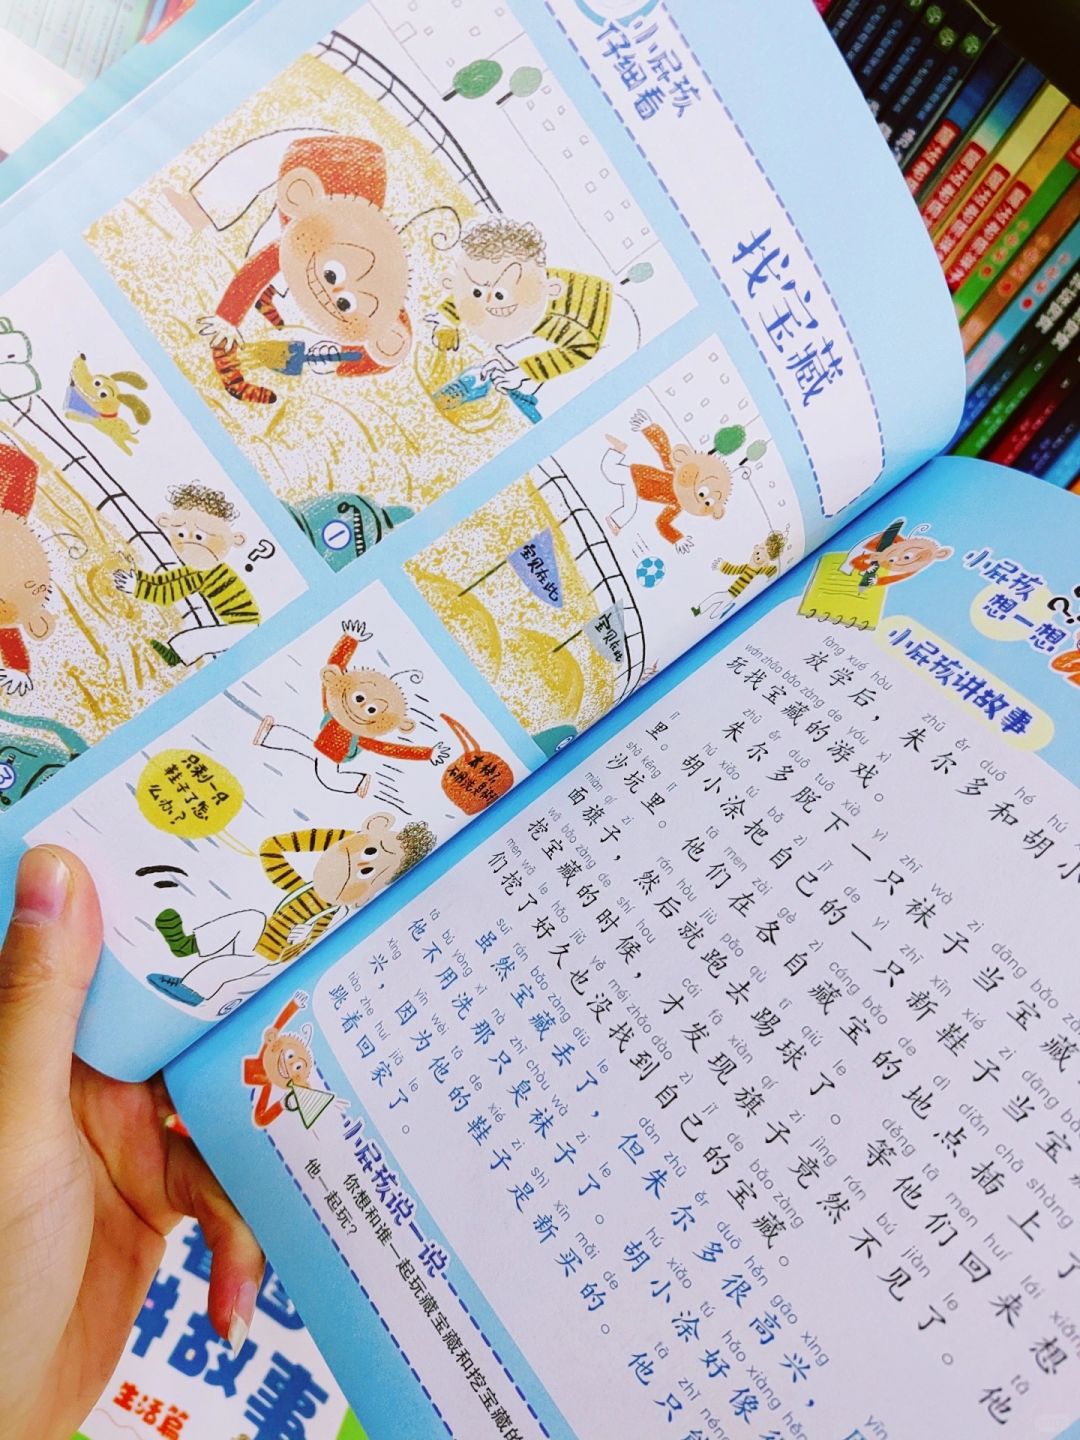 小屁孩
仔细看
找宝藏
①
宝贝在此
宝贝在此
③
只剩一只
鞋子了怎
么办？
?
小屁孩
想一想
小屁孩讲故事
fàng xué hòu zhū ěr duō hé hú
放学后，朱尔多和胡小
wán zhǎo bǎo zàng de yóu xì
玩找宝藏的游戏。
zhū ěr duō tuō xià yì zhī wà zi dāng bǎo
朱尔多脱下一只袜子当宝藏
lǐ hú xiǎo tú bǎ zì jǐ de yì zhī xīn xié zi dāng bǎo
里。胡小涂把自己的一只新鞋子当宝
shā kēng lǐ tā men zài gè zì cáng bǎo de dì diǎn chā shàng
沙坑里。他们在各自藏宝的地点插上了
miàn qí zi rán hòu jiù pǎo qù tī qiú le děng tā men huí lái xiǎng
面旗子，然后就跑去踢球了。等他们回来想
wā bǎo zàng de shí hou cái fā xiàn qí zi jìng rán bú jiàn le tā
挖宝藏的时候，才发现旗子竟然不见了。他
men wā le hǎo jiǔ yě méi zhǎo dào zì jǐ de bǎo zàng
们挖了好久也没找到自己的宝藏。
suī rán bǎo zàng diū le dàn zhū ěr duō hěn gāo xìng
虽然宝藏丢了，但朱尔多很高兴，
tā bú yòng xǐ nà zhī chòu wà zi le hú xiǎo tú hǎo xiàng
他不用洗那只臭袜子了。胡小涂好像
xìng yīn wèi tā de xié zi shì xīn mǎi de tā zhǐ néng
兴，因为他的鞋子是新买的。他只能
tiào zhe huí jiā le
跳着回家了。
小屁孩说一说
你想和谁一起玩藏宝藏和挖宝藏的
他一起玩？
讲故事
生活篇